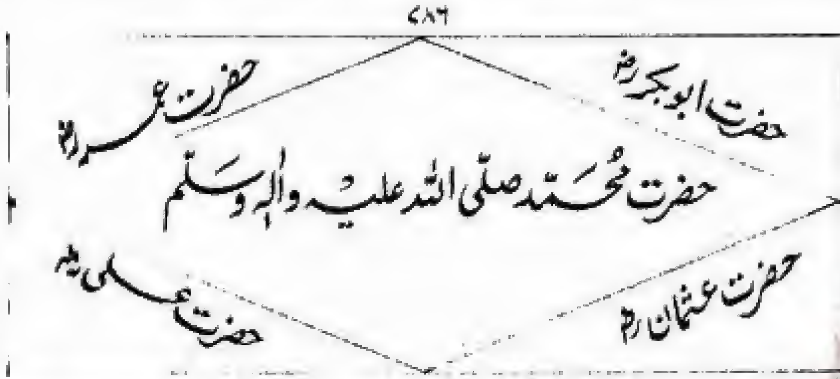 ۷۸۶
حضرت ابوبکر رضؓ
حضرت عمر رضؓ
حضرت مُحَمَّد صلّی اللہ علیہ واٰلہٖ وسَلّم
حضرت عثمان رضؓ
حضرت علی رضؓ